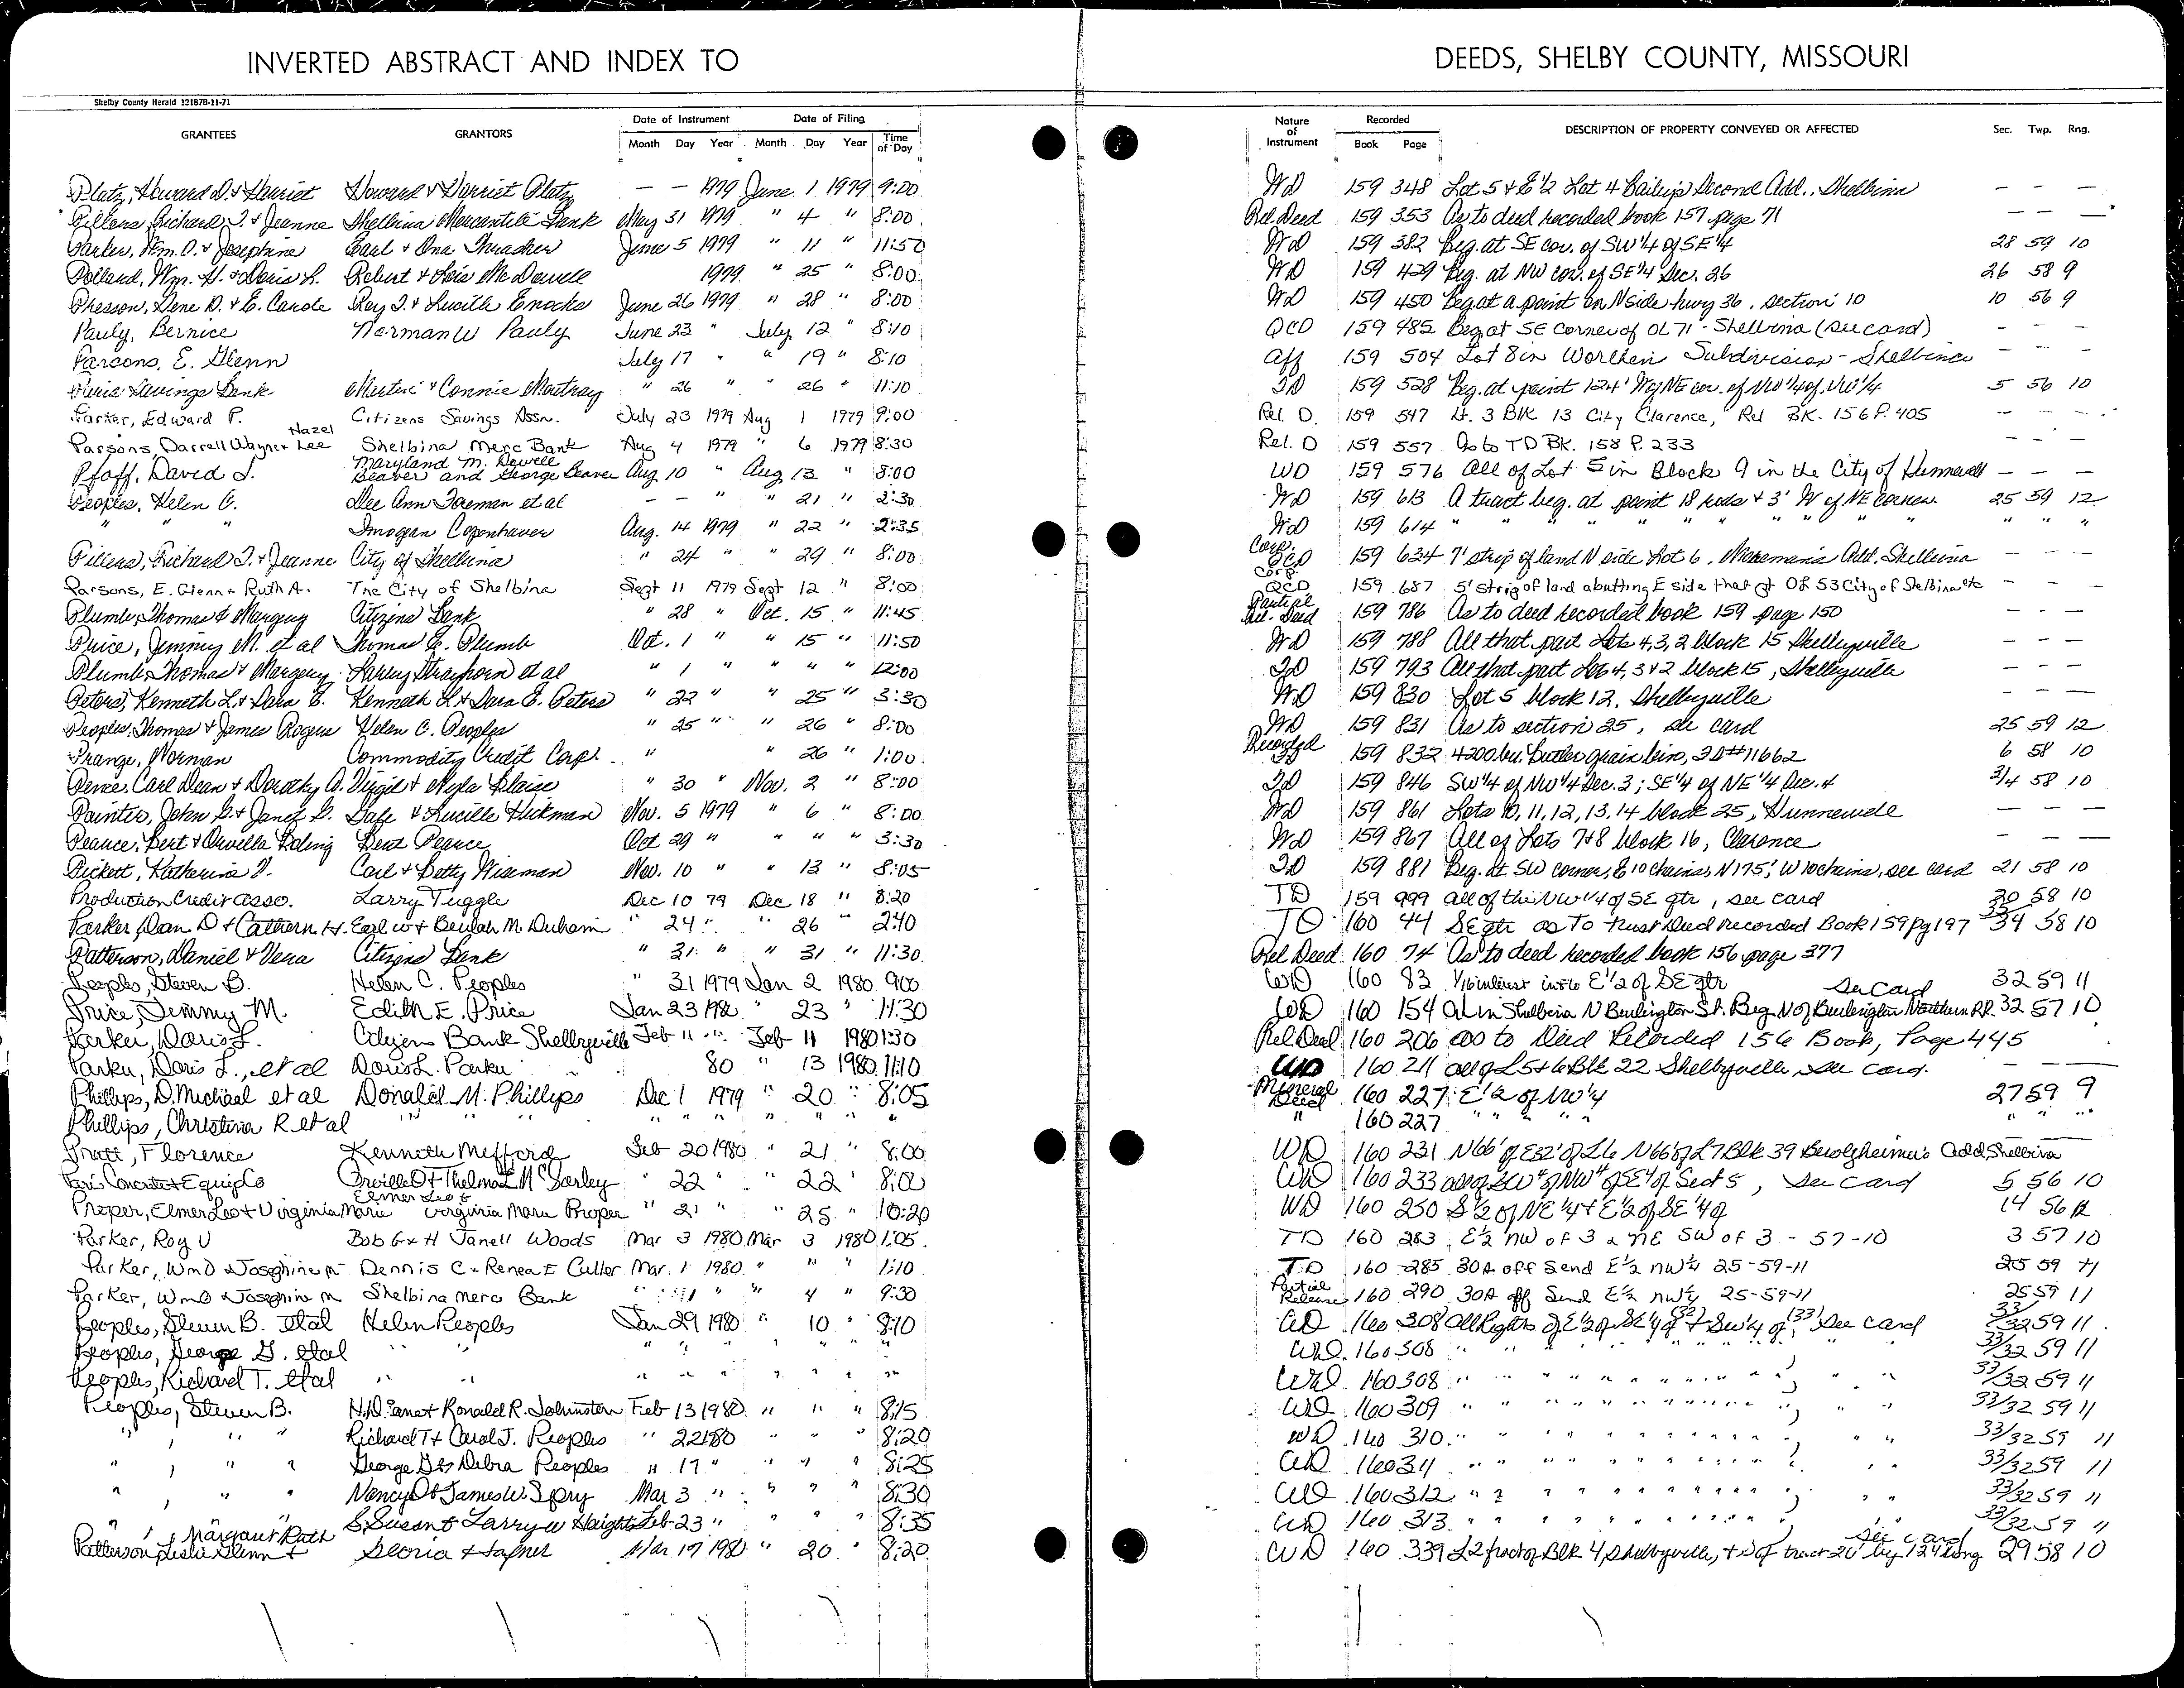 INVERTED ABSTRACT AND INDEX TO
DEEDS, SHELBY COUNTY, MISSOURI
Shelby County Herald 12187B-11-71
GRANTEES GRANTORS Date of Instrument Month Day Year Date of Filing Month Day Year Time of Day Nature of Instrument Recorded Book Page DESCRIPTION OF PROPERTY CONVEYED OR AFFECTED Sec. Twp. Rng.
Platz, Howard D. & Harriet Howard & Harriet Platz — — 1979 June 1 1979 9:00 WD 159 348 Lot 5 & E½ Lot 4 Second Add., Shelbina — — —
Richard J. & Jeanne Shelbina Mercantile Bank May 31 1979 " 4 " 8:00 Rel Deed 159 353 As to deed recorded book 157 page 71 — — —
Parker, Wm. O. & Josephine Earl & Ona Thrasher June 5 1979 " 11 " 11:50 WD 159 382 Beg. at SE cor. of SW¼ of SE¼ 28 59 10
Polland, Wm. H. & Doris L. Robert & Lois McDowell 1979 " 25 " 8:00 WD 159 429 Beg. at NW cor. of SE¼ Sec. 26 26 58 9
Presson, Gene D. & E. Carole Ray I. & Lucille Enochs June 26 1979 " 28 " 8:00 WD 159 450 Beg at a point on N side hwy 36, section 10 10 56 9
Pauly, Bernice Norman W Pauly June 23 " July 12 " 8:10 QCD 159 485 Beg at SE Corner of OL 71 - Shelbina (see card) — — —
Parsons, E. Glenn July 17 " " 19 " 8:10 Aff 159 504 Lot 8 in Worthen Subdivision - Shelbina — — —
Paris Savings Bank & Connie " 26 " " 26 " 11:10 TD 159 528 Beg. at point 124' W of NE cor. of NW¼ of NW¼ 5 56 10
Parker, Edward P. Citizens Savings Assn. July 23 1979 Aug 1 1979 9:00 Rel. D. 159 547 Lt. 3 Blk 13 City Clarence, Rel. BK. 156 P. 405 — — —
Parsons, Darrell Wayne & Hazel Lee Shelbina Merc Bank Aug 4 1979 " 6 1979 8:30 Rel. D 159 557 As to TD BK. 158 P. 233 — — —
Pfaff, David J. Maryland M. Dowell Beaver and George Beaver Aug 10 " Aug 13 " 8:00 WD 159 576 All of Lot 5 in Block 9 in the City of Hunnewell — — —
Peoples, Helen C. Dee Ann Foreman et al — — " " 21 " 2:30 WD 159 613 A tract beg. at point 18 rods & 3' W of NE corner. 25 59 12
" " " Imogean Copenhaver Aug. 14 1979 " 22 " 2:35 WD 159 614 " " " " " " " " " " " "
Richard J. & Jeanne City of Shelbina " 24 " " 29 " 8:00 Corp. QCD 159 634 7' strip of land N side Lot 6, Add. Shelbina — — —
Parsons, E. Glenn & Ruth A. The City of Shelbina Sept 11 1979 Sept 12 " 8:00 Corp. QCD 159 687 5' strip of land abutting E side that pt OL 53 City of Shelbina etc — — —
Plumb, Thomas & Margery Citizens Bank " 28 " Oct. 15 " 11:45 Partial Rel. Deed 159 786 As to deed recorded book 159 page 150 — — —
Price, Jimmy M. et al Thomas E. Plumb Oct. 1 " " 15 " 11:50 WD 159 788 All that part Lots 4, 3, 2 block 15 Shelbyville — — —
Plumb, Thomas & Margery Larry Strayhorn et al " 1 " " " " 12:00 TD 159 793 All that part Lots 4, 3 & 2 block 15, Shelbyville — — —
Peters, Kenneth L. & Dara E. Kenneth L. & Dara E. Peters " 22 " " 25 " 3:30 WD 159 830 Lot 5 block 12, Shelbyville — — —
Peoples, Thomas & James Roger Helen C. Peoples " 25 " " 26 " 8:00 WD 159 831 As to section 25, see card 25 59 12
Prange, Norman Commodity Credit Corp. " " 26 " 1:00 159 832 4200 bu. Butler grain bin, ID #11662 6 58 10
Pence, Carl Dean & Dorothy A. Virgil & Nyla Blaise " 30 " Nov. 2 " 8:00 TD 159 846 SW¼ of NW¼ Sec. 3; SE¼ of NE¼ Sec. 4 3/4 58 10
Painter, John G. & Janet G. Dale & Lucille Hickman Nov. 5 1979 " 6 " 8:00 WD 159 861 Lots 10, 11, 12, 13, 14 block 25, Hunnewell — — —
Pearce, Bert & Orville Boling Bert Pearce Oct 29 " " " " 3:30 WD 159 867 All of Lots 7 & 8 block 16, Clarence — — —
Pickett, Katherine V. Carl & Betty Wiseman Nov. 10 " " 13 " 8:05 TD 159 881 Beg. at SW corner, E 10 chains, N 175', W 10 chains, see card 21 58 10
Production Credit Asso. Larry Tuggle Dec 10 79 Dec 18 " 8:20 TD 159 999 all of the NW¼ of SE qtr, see card 30 58 10
Parker, Dan D & Cathern H. Earl W & Beulah M. Durham " 24 " " 26 " 2:40 TD 160 44 SE qtr as To Trust Deed Recorded Book 159 Pg 197 34 58 10
Patterson, Daniel & Vera Citizens Bank " 31 " " 31 " 11:30 Rel Deed 160 74 As to deed recorded book 156 page 377
Peoples, Steven B. Helen C. Peoples " 31 1979 Jan 2 1980 9:00 WD 160 83 1/16 interest into E½ of SE qtr See Card 32 59 11
Price, Jimmy M. Edith E. Price Jan 23 1980 " 23 " 11:30 WD 160 154 in Shelbina N Burlington St. Beg. N of Burlington Northern RR. 32 57 10
Parker, Doris L. Citizens Bank Shelbyville Feb 11 " Feb 11 1980 1:30 Rel Deed 160 206 as to Deed Recorded 156 Book, Page 445
Parker, Doris L., et al Doris L. Parker 80 " 13 1980 11:10 WD 160 211 all of L5 & 6 Blk 22 Shelbyville, see card. — — —
Phillips, D. Michael et al Donald M. Phillips Dec 1 1979 " 20 " 8:05 Mineral Deed 160 227 E½ of NW¼ 27 59 9
Phillips, Christina R et al " " " " " " " " " " " 160 227 " " " " " " "
Pratt, Florence Kenneth Mefford Feb 20 1980 " 21 " 8:00 WD 160 231 N66' of E32' of L6 N66' of L7 Blk 39 Add Shelbina
Paris Concrete & Equip Co Orville D & Thelma L McSorley " 22 " " 22 " 8:00 WD 160 233 all of SW¼ of NW¼ of SE¼ of Sect 5, see card 5 56 10
Proper, Elmer Leo & Virginia Marie Elmer Leo & Virginia Marie Proper " 21 " " 25 " 10:20 WD 160 250 S½ of NE¼ & E½ of SE¼ of 14 56 12
Parker, Roy V Bob G & H Janell Woods Mar 3 1980 Mar 3 1980 1:05 TD 160 283 E½ NW of 3 & NE SW of 3 - 57-10 3 57 10
Parker, Wm O & Josephine M Dennis C & Renea E Culler Mar 1 1980 " " " 1:10 TD 160 285 30A off Send E½ NW¼ 25-59-11 25 59 11
Parker, Wm O & Josephine M Shelbina Merc Bank " " " 4 " 9:30 Partial Release 160 290 30A off Send E½ NW¼ 25-59-11 25 59 11
Peoples, Steven B. Etal Helen Peoples Jan 29 1980 " 10 " 8:10 WD 160 308 All Rights of E½ of SE¼ of (32) & SW¼ of (33), see card 33/32 59 11
Peoples, George G. Etal " " " " " " " " WD 160 308 " " " " " " " 33/32 59 11
Peoples, Richard T. Etal " " " " " " " " WD 160 308 " " " " " " " 33/32 59 11
Peoples, Steven B. H.D. Janet & Ronald R. Johnston Feb 13 1980 " " " 8:15 WD 160 309 " " " " " " " 33/32 59 11
" , " " Richard T & Carol J. Peoples " 22 1980 " " " 8:20 WD 160 310 " " " " " " " 33/32 59 11
" , " " George G & Debra Peoples " 17 " " " " 8:25 WD 160 311 " " " " " " " 33/32 59 11
" , " " Nancy D & James W. Spry Mar 3 " " " " 8:30 WD 160 312 " " " " " " " 33/32 59 11
" , " " S. Susan & Larry W Haights Feb 23 " " " " 8:35 WD 160 313 " " " " " " " 33/32 59 11
Patterson, Leslie Glenn & Margaret Ruth Gloria & Hafner Mar 17 1980 " 20 " 8:20 WD 160 339 L2 fract of Blk 4, Shelbyville, & S of tract 20' by 124' long see card 29 58 10